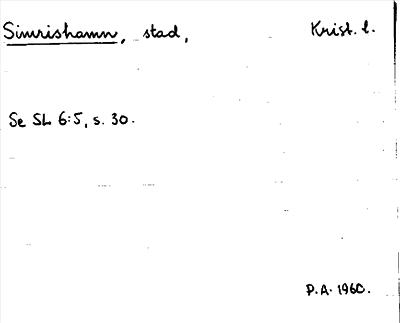 Simrishamn, stad, Krist. l.
Se SL 6:5, s. 30.
P.A. 1960.